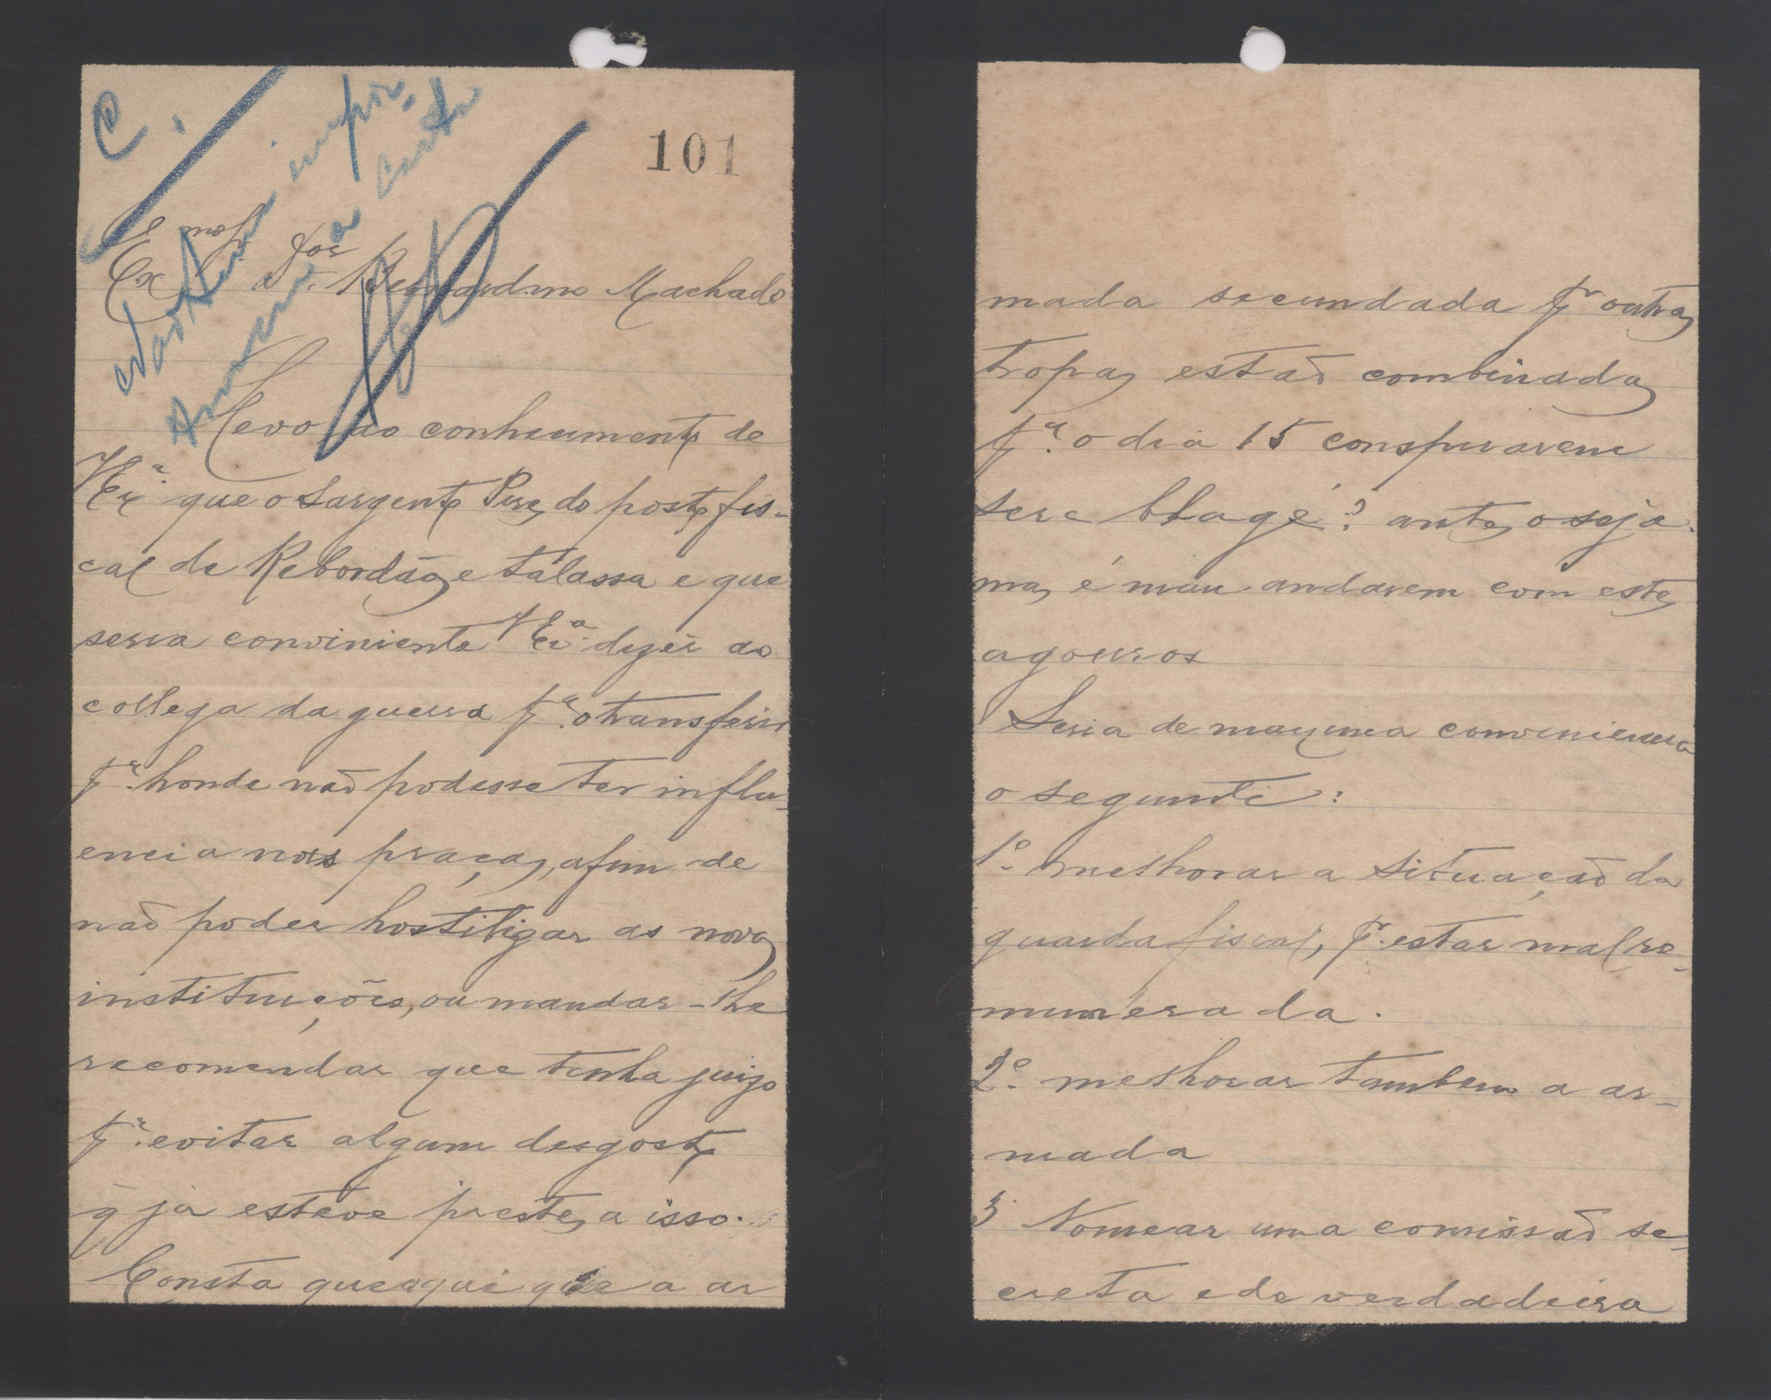 C.
101
Exmo Snr. Dor Bernardino Machado
Levo ao conhecimento de
V Exª que o Sargento Pires do posto fis-
cal de Rebordãos e talassa e que
seria conviniente V Exª dizer ao
collega da guerra pª o transferir
pª honde naõ podesse ter influ-
encia nas praças, afim de
naõ poder hostilizar as novas
instituições, ou mandar-lhe
recomendar que tenha juizo
pª evitar algum desgosto
q̃ já esteve prestes a isso.
Consta que aqui que a ar
mada secundada pr outras
tropas estaõ combinadas
pª o dia 15 conspirarem
sere blage? antes o seja.
mas é mau andarem com estes
agouros
Seria de maxima conveniencia
o seguinte:
1º melhorar a situaçaõ da
guarda fiscal, pr estar mal re-
munerada.
2º melhorar tambem a ar-
mada
3 Nomear uma comissaõ se-
creta e de verdadeira